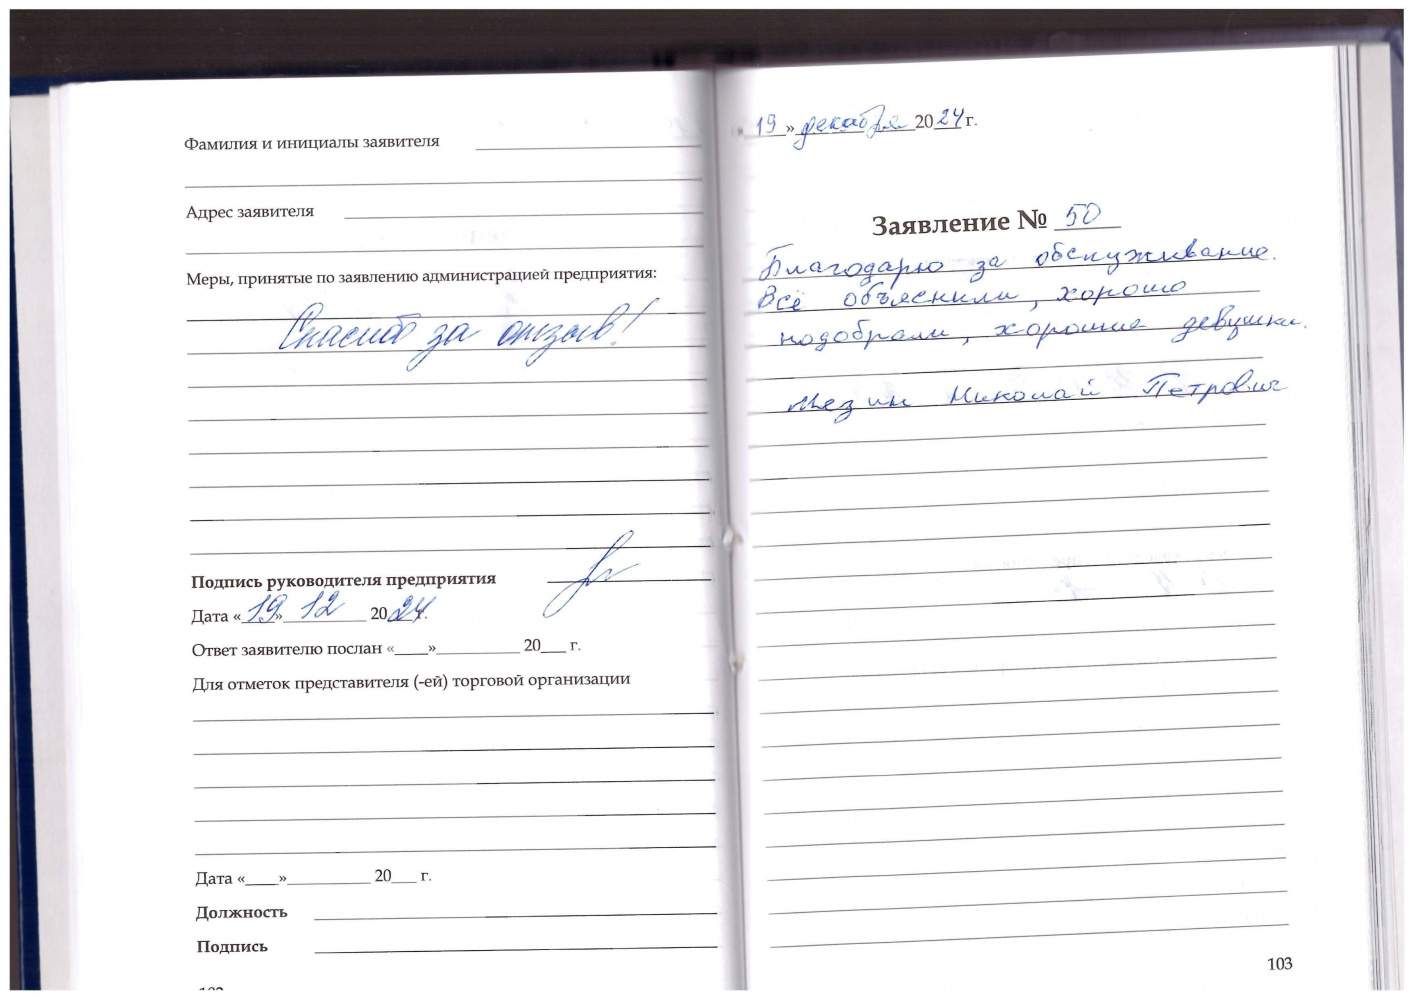 Фамилия и инициалы заявителя
Адрес заявителя
Меры, принятые по заявлению администрацией предприятия:
Спасибо за отзыв!
Подпись руководителя предприятия
Дата «19» 12 2024 г.
Ответ заявителю послан «____»__________ 20___ г.
Для отметок представителя (-ей) торговой организации
Дата «____»__________ 20___ г.
Должность
Подпись
19» декабря 2024 г.
Заявление № 50
Благодарю за обслуживание.
Всё объяснили, хорошо
подобрали, хорошие девушки.
Мезин Николай Петрович
103